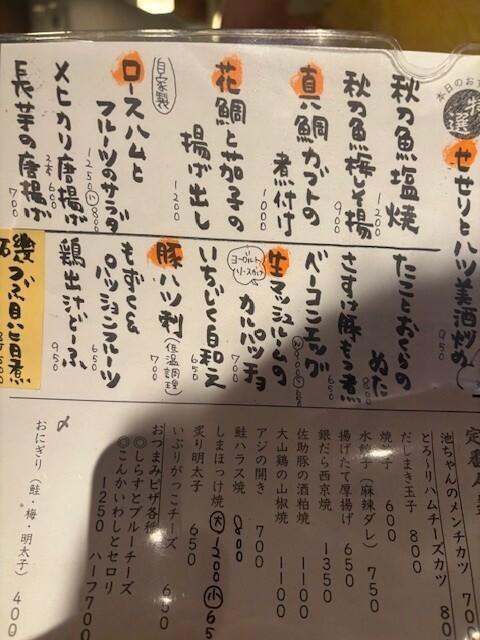 本日のおす
特選
せせりとハツ美酒炒め
950
秋刀魚塩焼
1200
秋刀魚梅しそ揚
900
真鯛カブトの
煮付け
1000
花鯛と茄子の
揚げ出し
1200
自家製
ロースハムと
フルーツのサラダ
1250 小800
メヒカリ唐揚げ
2本600
長芋の唐揚げ
700
たことおくらの
ぬた
800
さすけ豚もつ煮
650
ベーコンエッグ
生マッシュルームの
カルパッチョ
700
いちじく白和え
650
豚ハツ刺
(低温調理)
700
もずくと
パッションフルーツ
650
鶏出汁どーふ
950
磯つぶ貝旨煮
池ちゃんのメンチカツ
700
とろ〜りハムチーズカツ
80
だしまき玉子
800
焼餃子
600
水餃子(麻辣ダレ)
750
揚げたて厚揚げ
650
銀だら西京焼
1350
佐助豚の酒粕焼
1100
大山鶏の山椒焼
1100
アジの開き
700
鮭ハラス焼
800
しまほっけ焼
大1200 小65
炙り明太子
650
いぶりがっこチーズ
650
おつまみピザ各種
◎しらすとブルーチーズ
◎こんかいわしとセロリ
1250 ハーフ700
〆
おにぎり(鮭・梅・明太子)
400